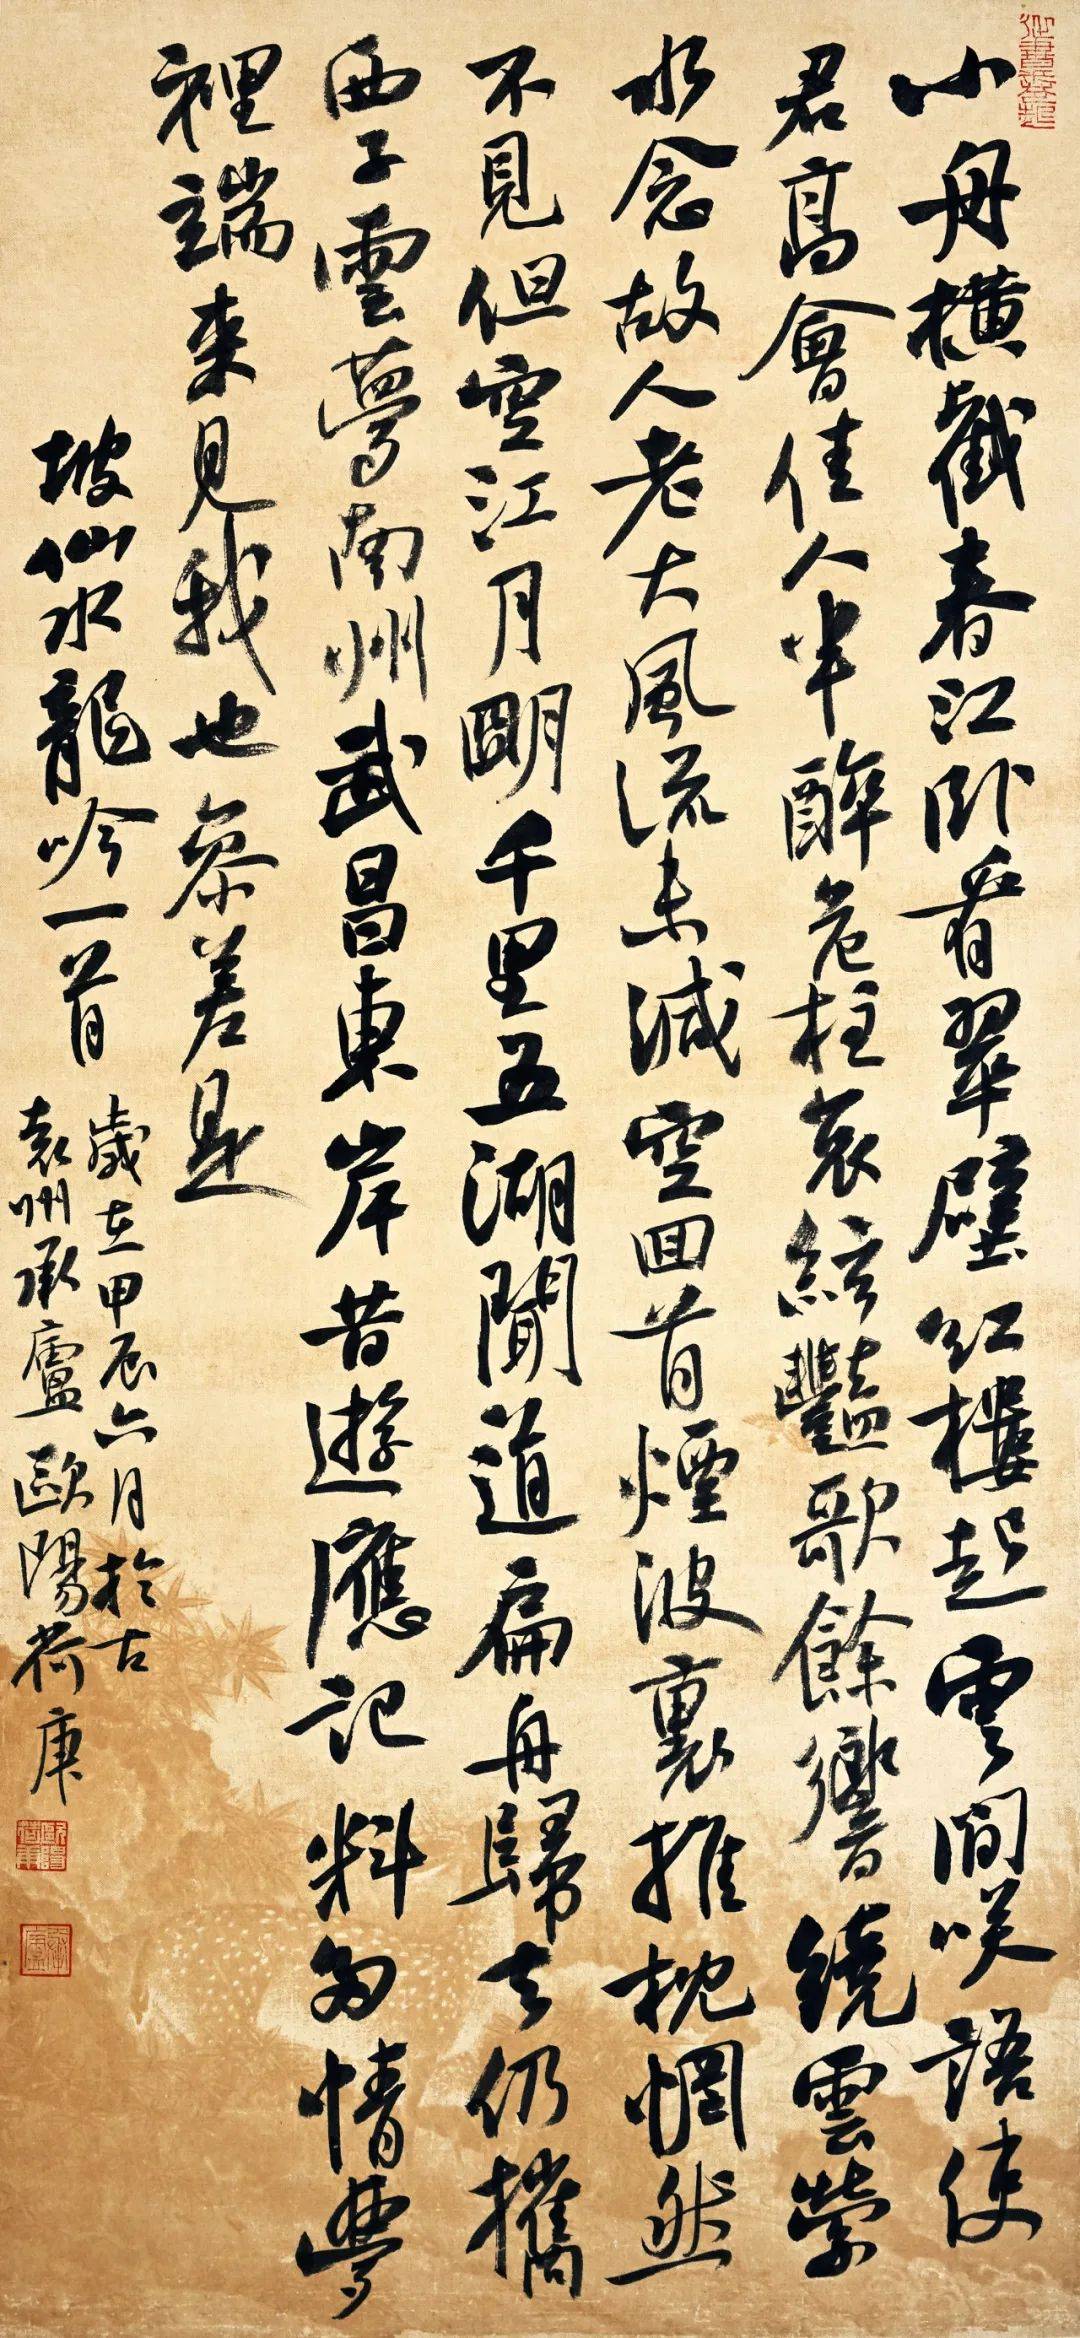 小舟橫截春江臥看翠壁紅樓起雲間咲語使
君高會佳人半醉危柱哀絃豔歌餘響繞雲縈
水念故人老大風流未減空囬首煙波裏推枕惘然
不見但空江月朙千里五湖聞道扁舟歸去仍攜
西子雲夢南州武昌東岸昔遊應記料多情夢
裡端來見我也參差是
坡仙水龍吟一首
歲在甲辰六月於古
袁州承廬歐陽荷庚